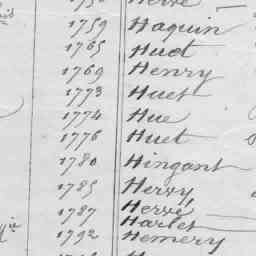 Hervé
1759 Haquin
1765 Huet
1769 Henry
1773 Huet
1774 Hue
1776 Huet
1780 Hingant
1785 Hervy
1787 Hervé
Harlet
1792 Hemery